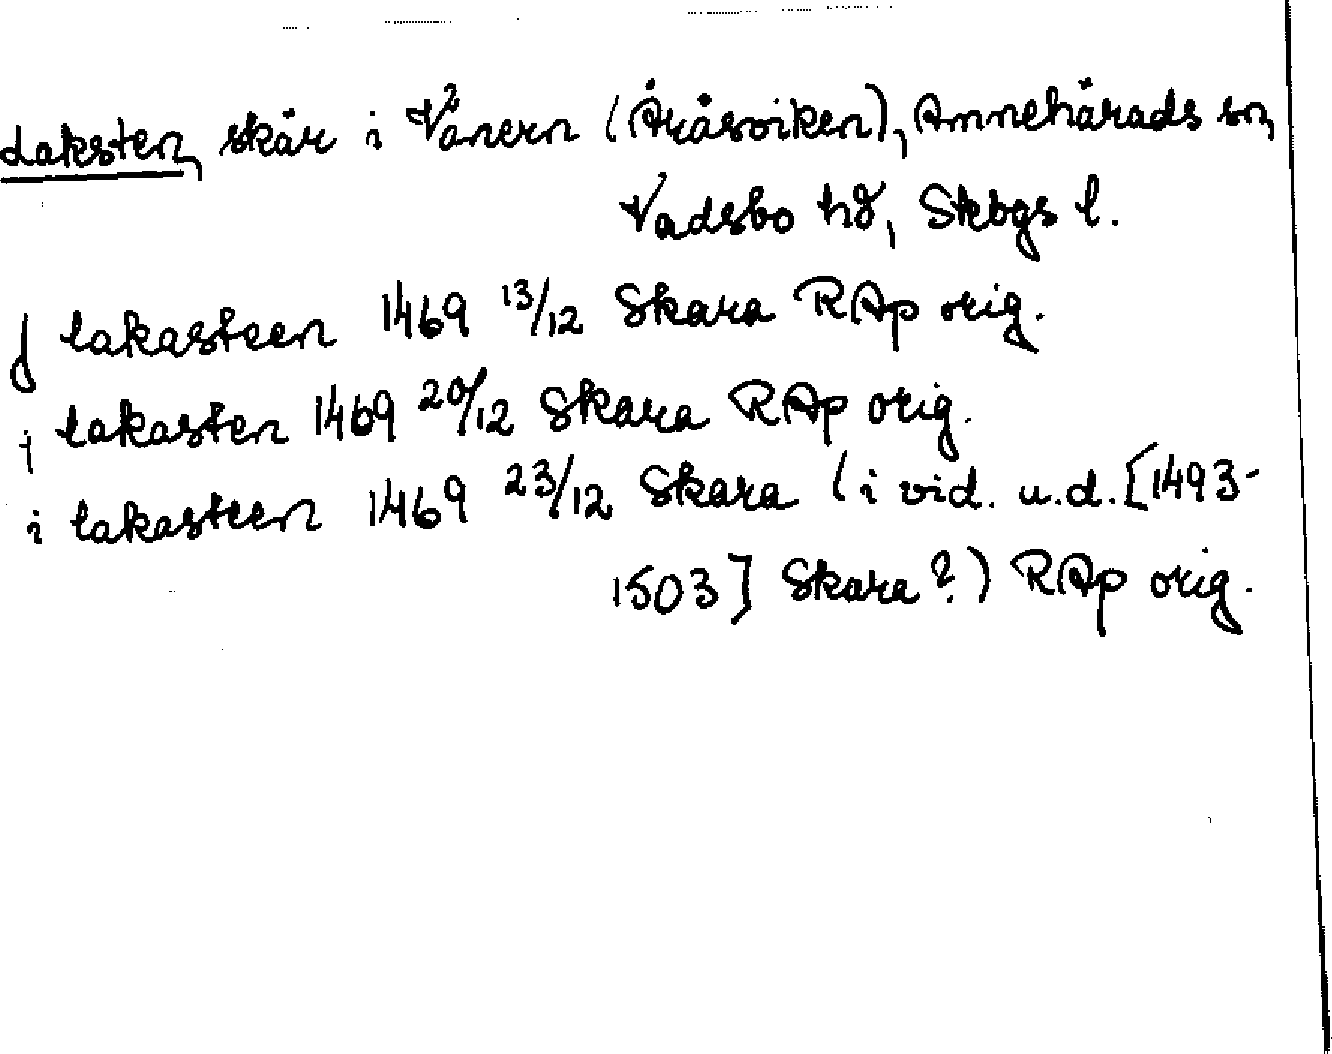 Laksten, skär i Vänern (Åråsviken), Amnehärads sn,
Vadsbo hd, Skbgs l.
J lakasteen 1469 13/12 Skara RAp orig.
j lakasten 1469 20/12 Skara RAp orig.
i lakasteen 1469 23/12 Skara (i vid. u.d. [1493-
1503] Skara?) RAp orig.